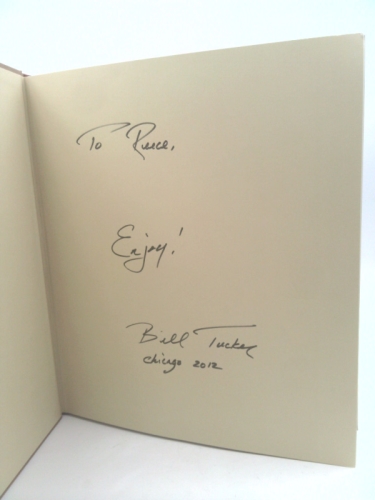 To Pierce,
Enjoy!
Bill Tucker
Chicago 2012